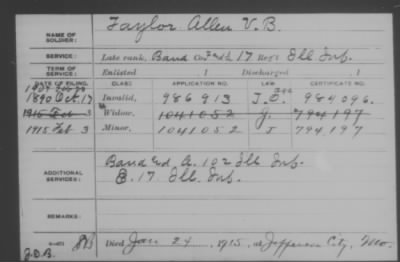 NAME OF SOLDIER: Taylor Allen V. B.
SERVICE: Late rank, Band Co. 17 Reg't Ill Inf.
TERM OF SERVICE: Enlisted , 1 Discharged , 1
DATE OF FILING. CLASS. APPLICATION NO. LAW. CERTIFICATE NO.
1890 Oct. 17 Invalid, 986 913 J.O. age 984 096.
1915 Feb 3 Widow, 1041052 J. 794197
1915 Feb 3 Minor, 1041052 J 794197
ADDITIONAL SERVICES: Band Ed A. 102 Ill Inf.
B. 17 Ill. Inf.
REMARKS:
Died Jan 24, 1915, at Jefferson City, Mo.
J.D.B.